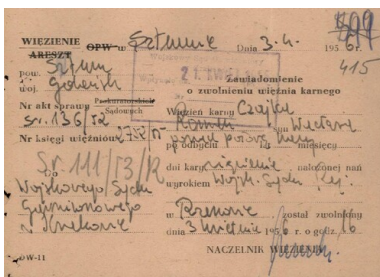 WIĘZIENIE
ARESZT OPW w Sztumie Dnia 3.4. 1956 r.
pow. Sztum
woj. Gdańsk
415
Zawiadomienie
o zwolnieniu więźnia karnego
Nr akt sprawy Prokuratorskich
Sądowych
Sr. 136/52
Więzień karny Czajka
Roman syn Wacława
Nr księgi więźniów
po odbyciu lat miesięcy
Sr 111/53/R
Do
dni kary więzienia nałożonej nań
Wojskowego Sądu
wyrokiem Wojsk. Sądu Rej.
Garnizonowego
w Krakowie
w Rzeszowie został zwolniony
dnia 3 kwietnia 1956 r. o godz. 16
NACZELNIK WIĘZIENIA
OW-11